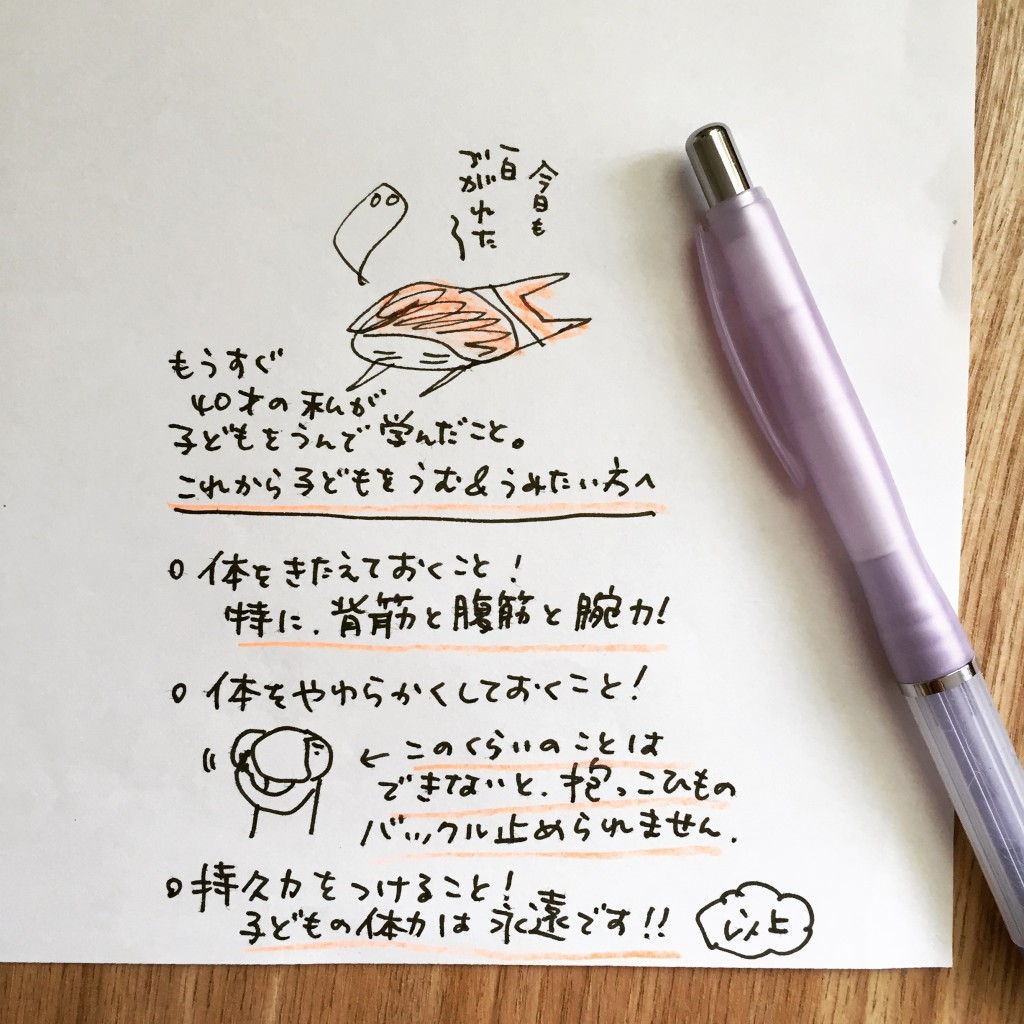 今日も
一日
つかれた
もうすぐ
40才の私が
子どもをうんで学んだこと。
これから子どもをうむ&うみたい方へ
○体をきたえておくこと!
特に、背筋と腹筋と腕力!
○体をやわらかくしておくこと!
←このくらいのことは
できないと、抱っこひもの
バックル止められません。
○持久力をつけること!
子どもの体力は永遠です!!
以上